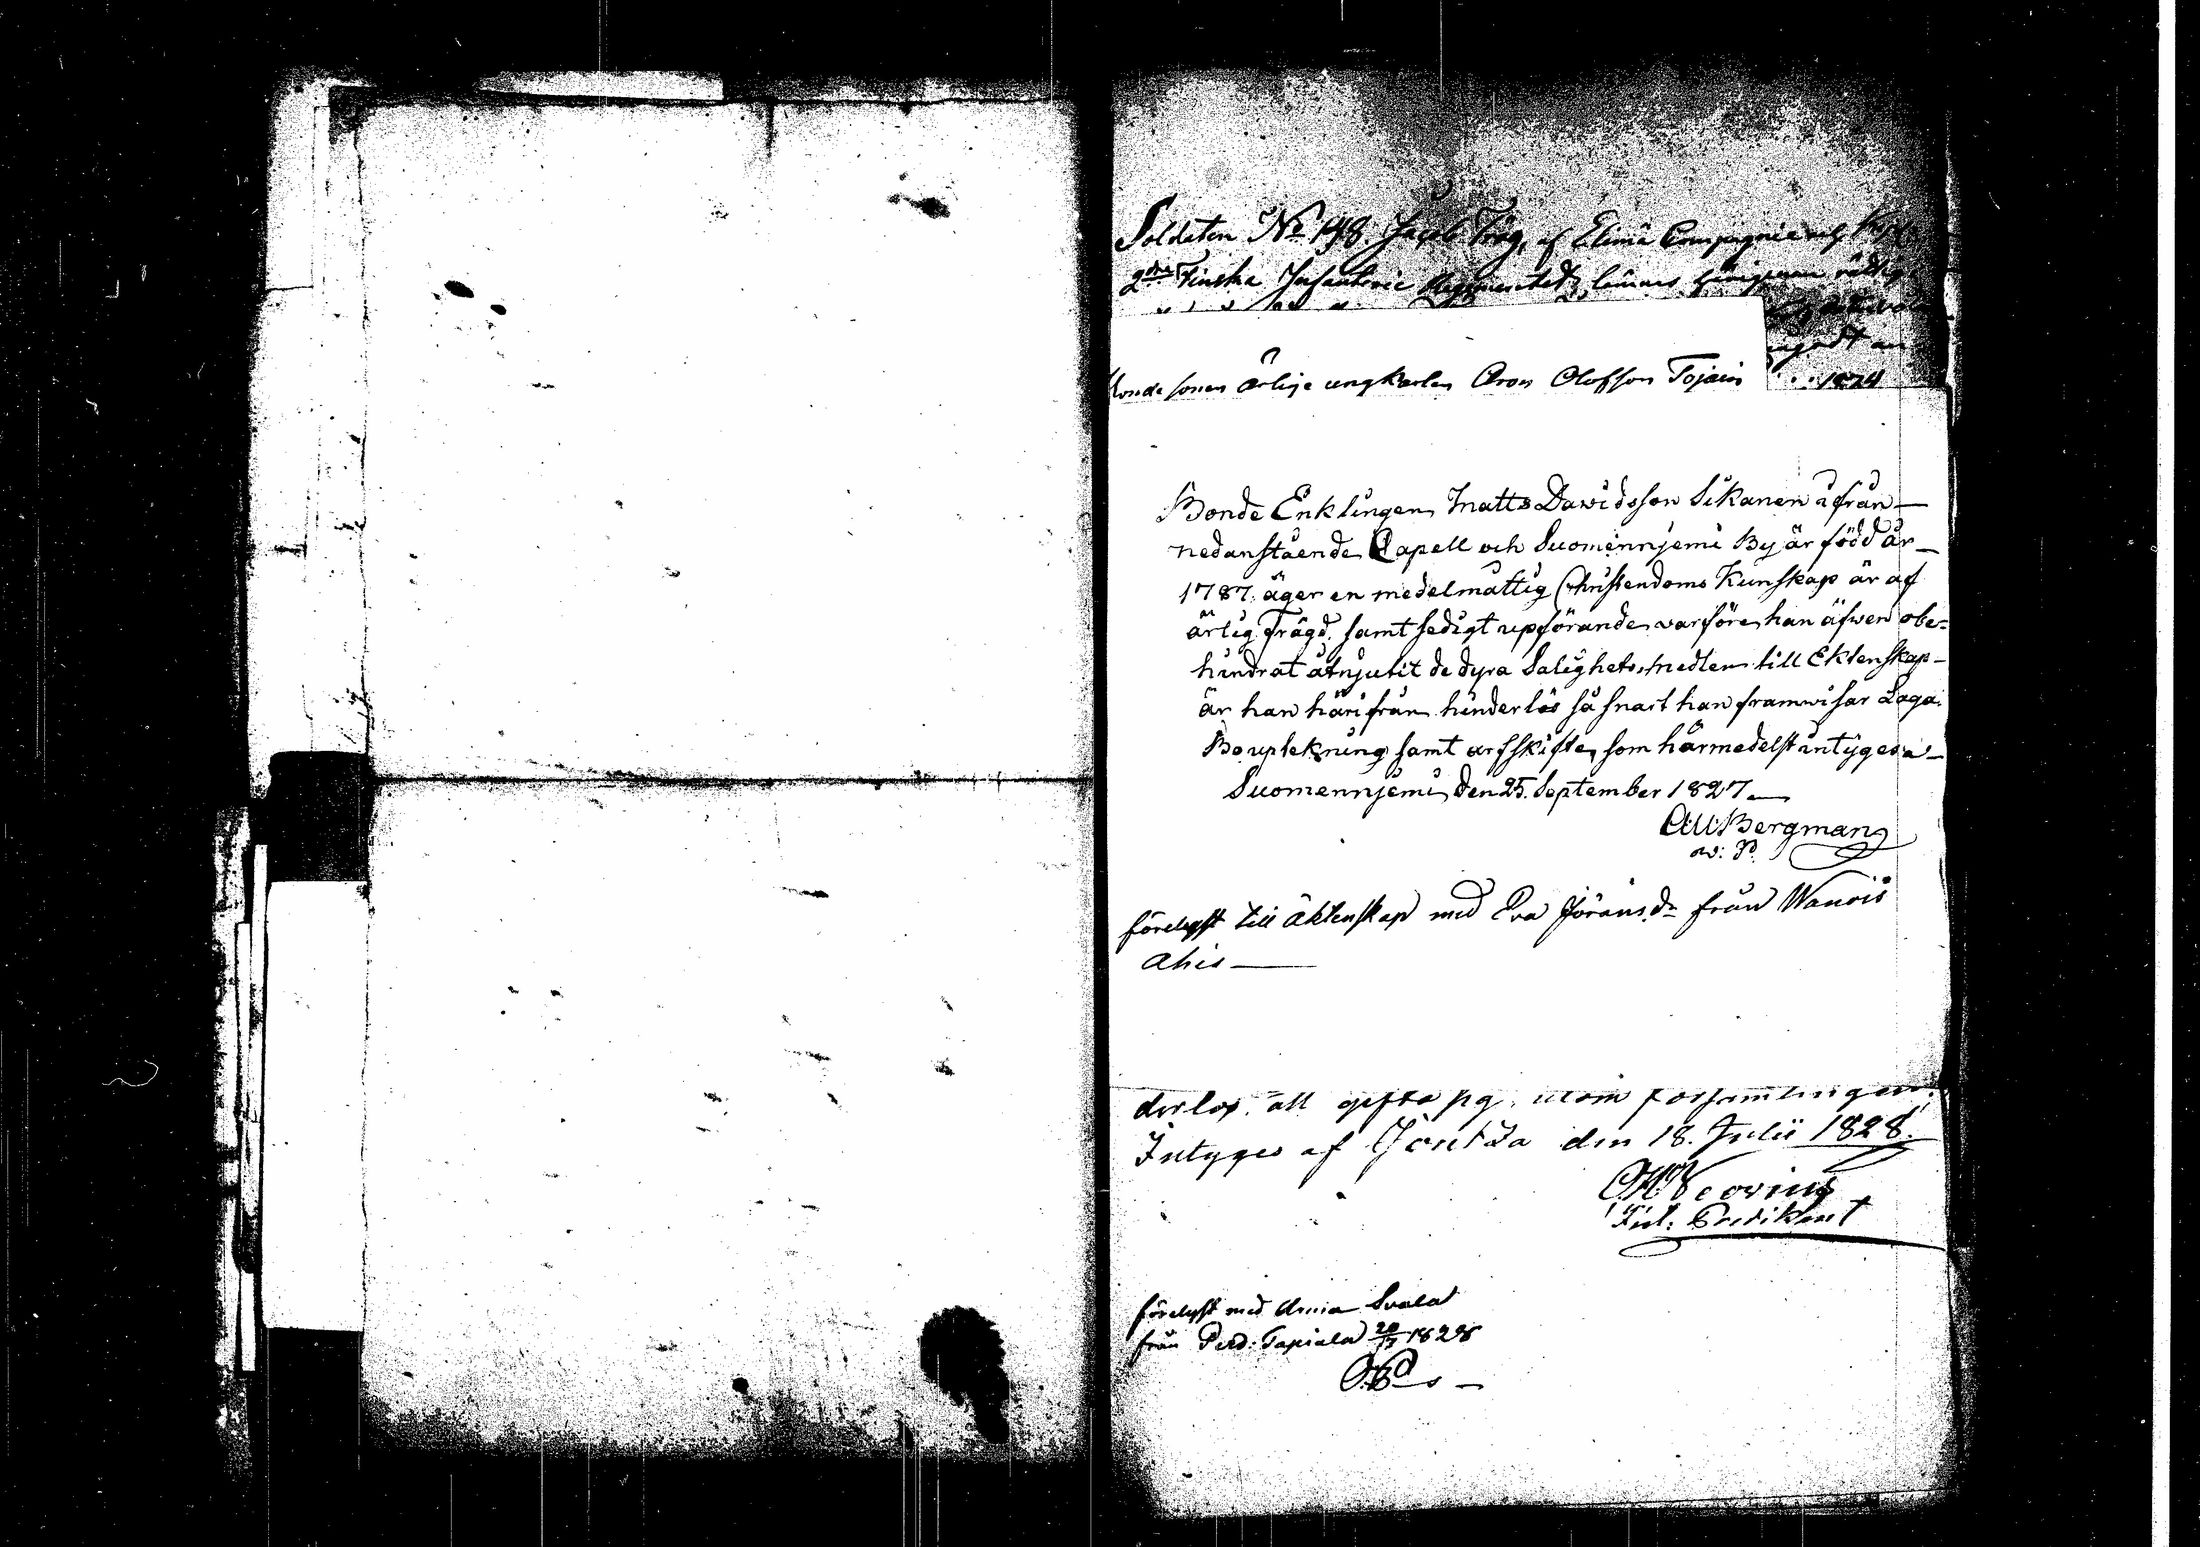 Soldaten No 148. Jacob Trög, af Elimä Compagnie och
2dra Finska Infanterie Regementet, lännes
1824
Bonde sonen ärlige ungkarlen Aron Olofsson Tojain
Bonde Enklingen Matts Dawidsson Sikanen ifrån
nedanstående Capell och Suomennjemi By är född år
1787. äger en medelmåttig Christendoms Kunskap är af
ärlig Frägd, samt sedigt upförande, varföre han äfwen obe-
hindrat åtnjutit de dyra Salighets medlen till Ektenskap
är han härifrån hinderlös så snart han framwisar Laga
Boupteknĩng samt arfskifte, som härmedelst intygas a
Suomennjemi, den 25. September 1827
Bergman
v: P.
förelyst till äktenskap med Eva Jöransdr från
Ahis
derlös att gifta sig utom församlingen,
Intyges af Jontza den 18. Julii 1828.
Predikant
förelyst med Anna Svala
från Perd: Tapiala 20/7 1828